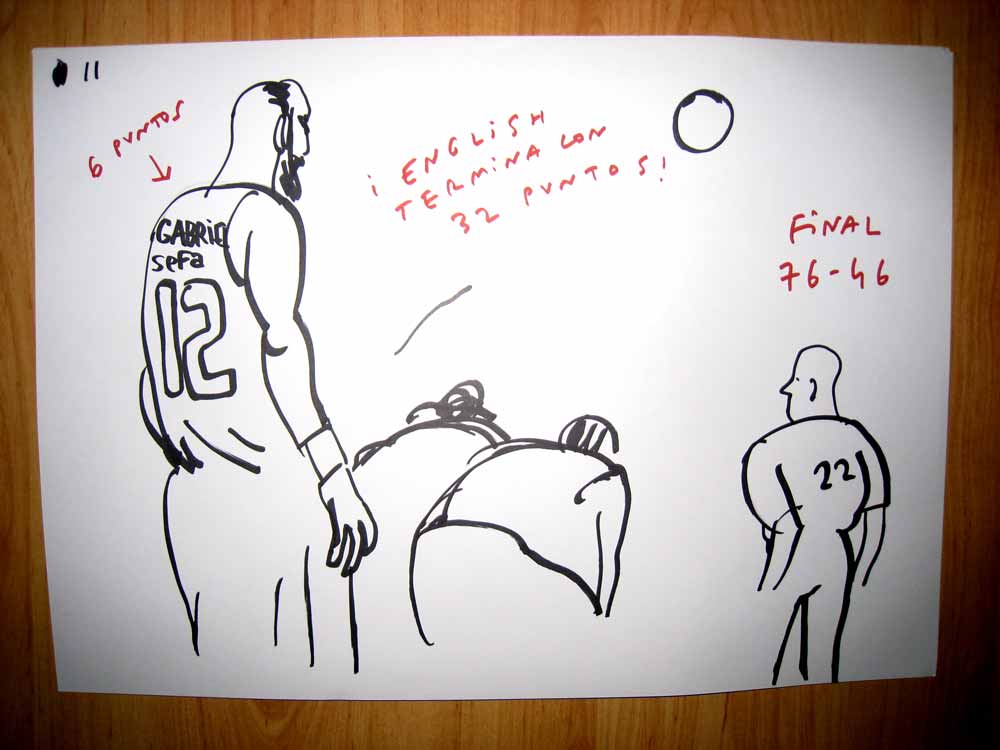 11
6 PUNTOS
¡ ENGLISH
TERMINA CON
32 PUNTOS!
FINAL
76-46
GABRIE
sefa
12
22